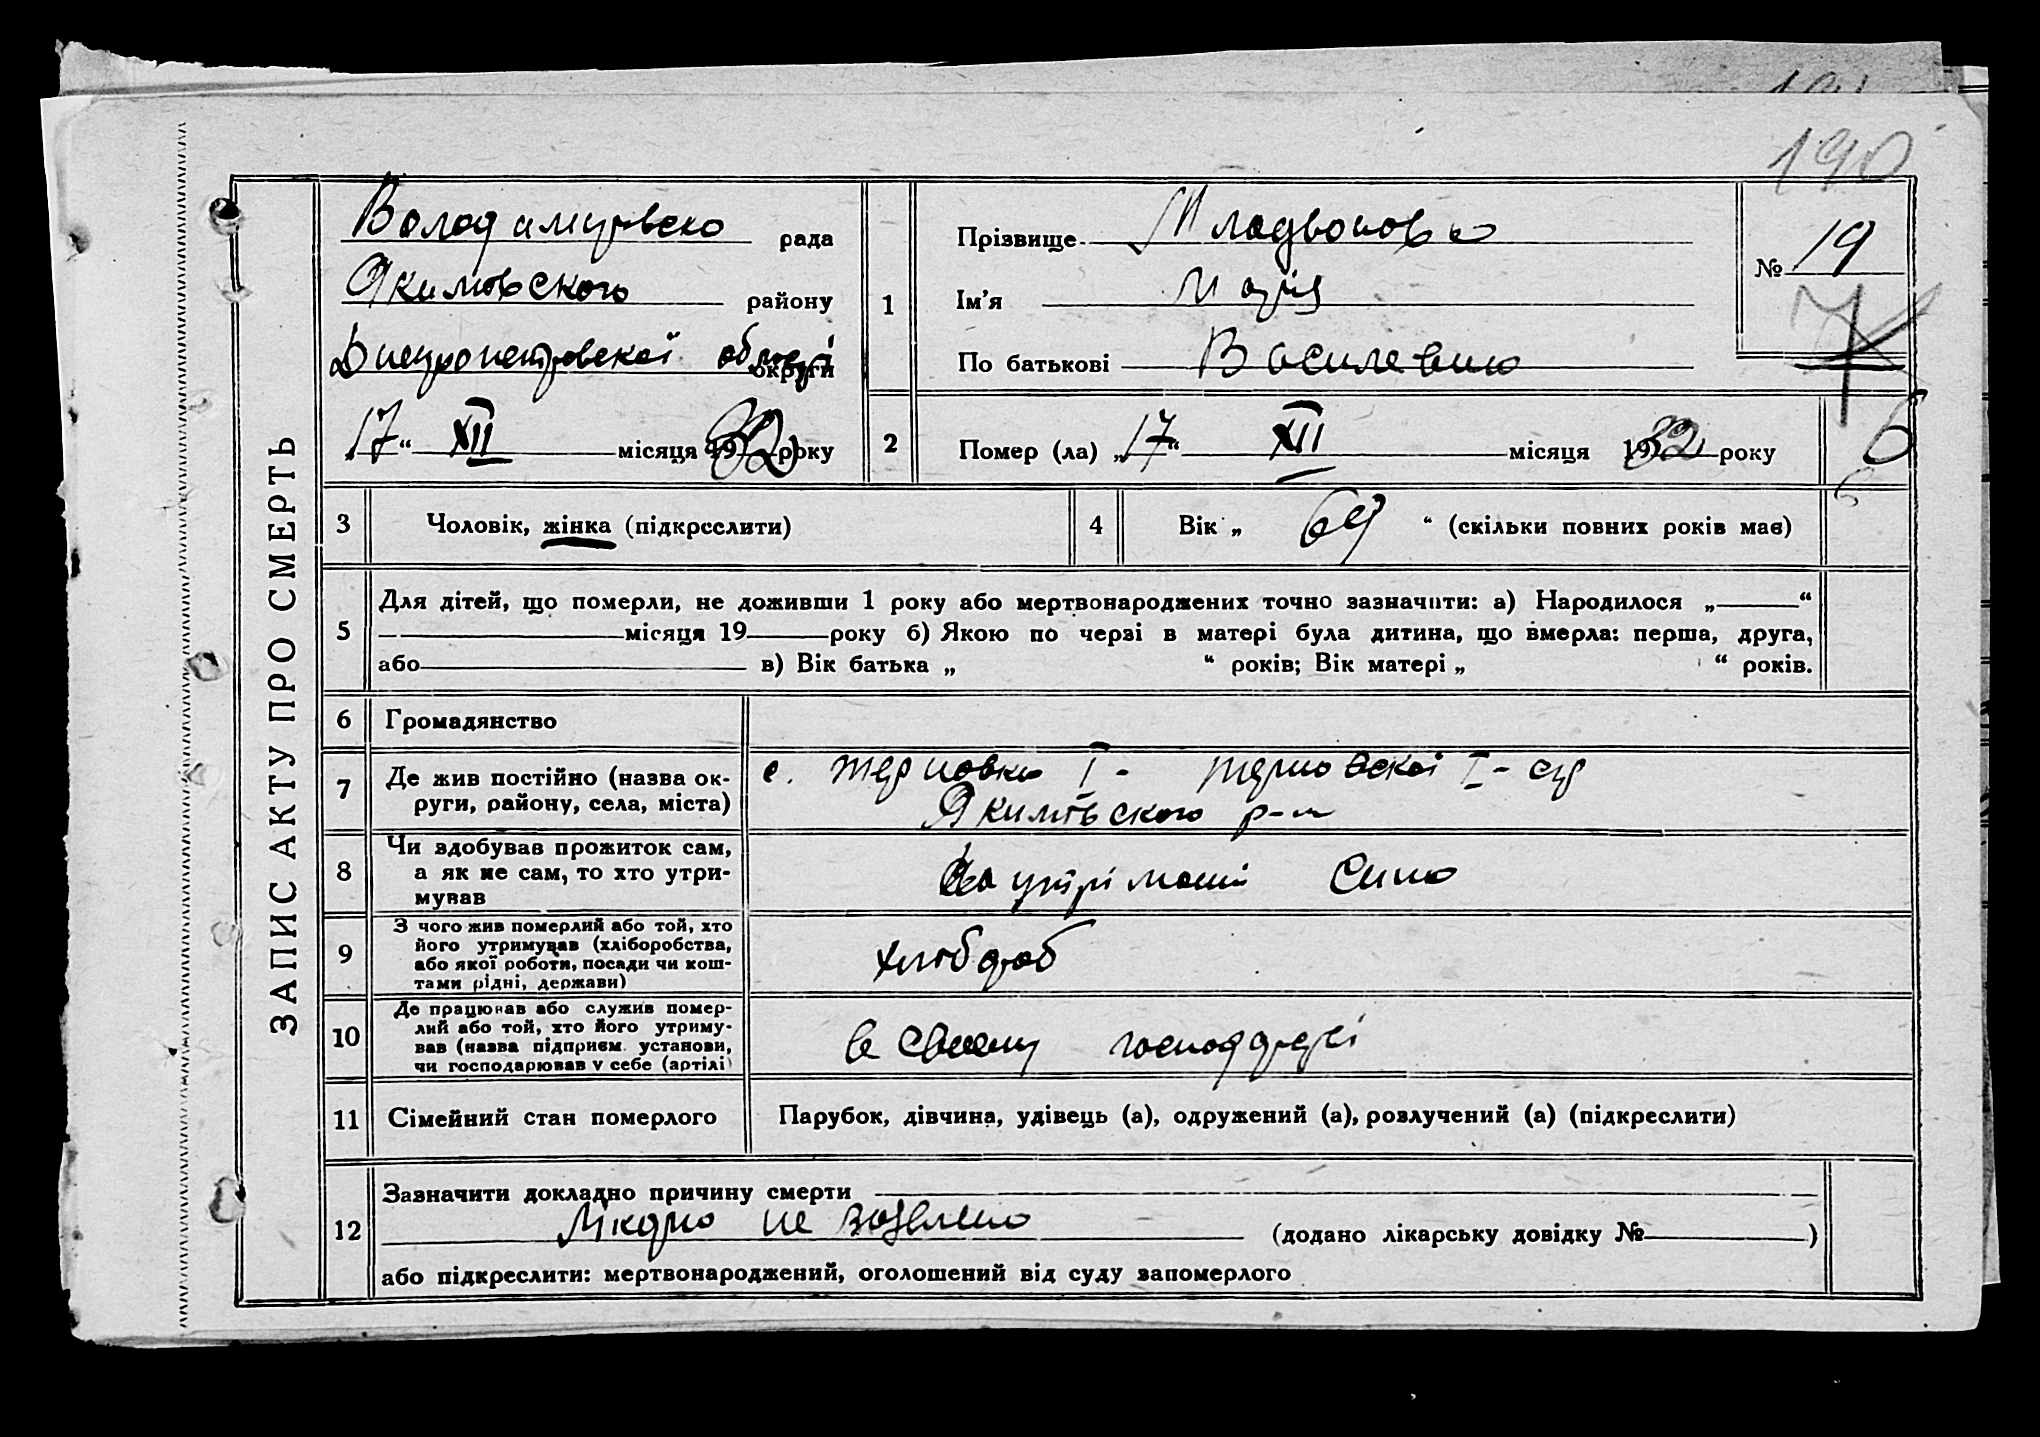 190
ЗАПИС АКТУ ПРО СМЕРТЬ
Володимировска рада
Якимівского району
Дніпропетровскої області округи
„17“ XII місяця 1932 року
1
Прізвище
Ім’я Марія
По батькові Василевна
№ 19
7
6
2
Помер (ла) „17“ XII місяця 1932 року
3
Чоловік, жінка (підкреслити)
4
Вік „ 69 “ (скільки повних років має)
5
Для дітей, що померли, не доживши 1 року або мертвонароджених точно зазначити: а) Народилося „ “
місяця 19 року б) Якою по черзі в матері була дитина, що вмерла: перша, друга,
або в) Вік батька „ “ років; Вік матері „ “ років.
6
Громадянство
7
Де жив постійно (назва ок-
руги, району, села, міста)
с. Терновка I- Терновскої I- с/р
Якимівского р-н
8
Чи здобував прожиток сам,
а як не сам, то хто утри-
мував
На утріманні Сина
9
З чого жив померлий або той, хто
його утримував (хліборобства,
або якої роботи, посади чи кош-
тами рідні, держави)
хлібороб
10
Де працював або служив помер-
лий або той, хто його утриму-
вав (назва підприєм. установи,
чи господарював у себе (артілі)
в своєму господарстві
11
Сімейний стан померлого
Парубок, дівчина, удівець (а), одружений (а), розлучений (а) (підкреслити)
12
Зазначити докладно причину смерти
не
(додано лікарську довідку № )
або підкреслити: мертвонароджений, оголошений від суду запомерлого